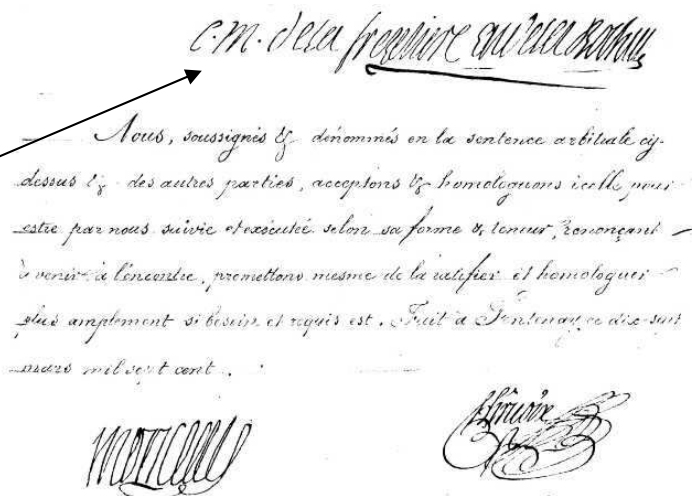 C. M. de la frezeliere
Nous, soussignés & dénommés en la sentence arbitrale cy-
dessus & des autres parties, acceptons & homologuons icelle pour
estre par nous suivie et exécutée selon sa forme & teneur, renonçant
à venir à l'encontre, promettons mesme de la ratifier et homologuer
plus amplement si besoin et requis est. Fait à Fontenay, ce dix-sept
mars mil sept cent.